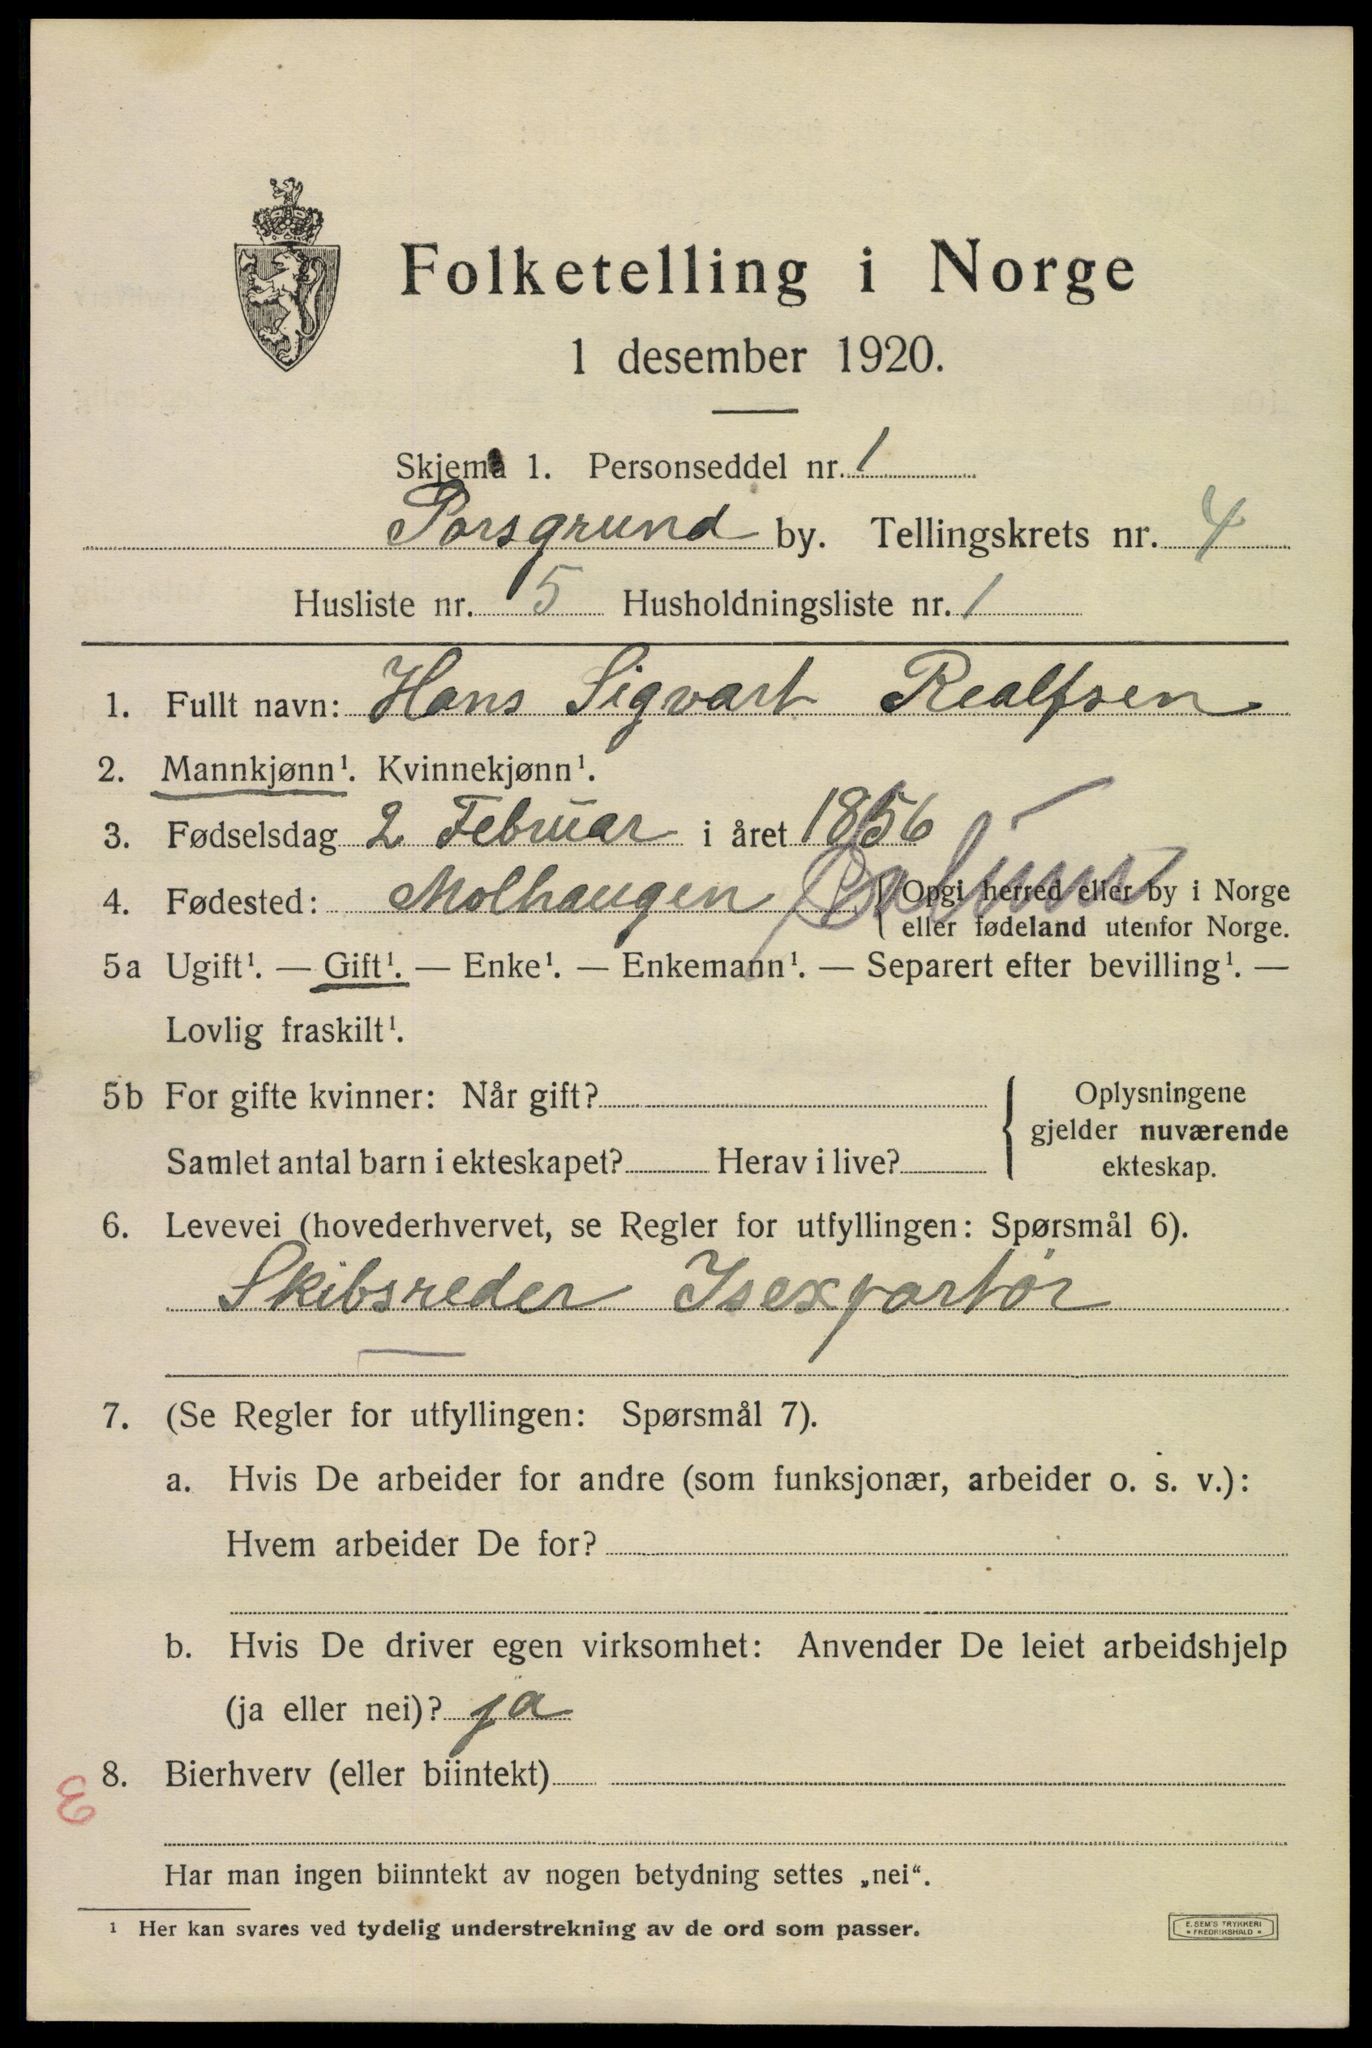 Folketelling i Norge
1 desember 1920.
Skjema 1. Personseddel nr. 1
Porsgrund by. Tellingskrets nr. 4
Husliste nr. 5 Husholdningsliste nr. 1
1. Fullt navn: Hans Sigvart Realfsen
2. Mannkjønn¹. Kvinnekjønn¹.
3. Fødselsdag 2 Februar i året 1856
4. Fødested: Molhaugen { Opgi herred eller by i Norge
eller fødeland utenfor Norge.
5a Ugift¹. — Gift¹. — Enke¹. — Enkemann¹. — Separert efter bevilling¹. —
Lovlig fraskilt¹.
5b For gifte kvinner: Når gift?
Samlet antal barn i ekteskapet? Herav i live?
Oplysningene
gjelder nuværende
ekteskap.
6. Levevei (hovederhvervet, se Regler for utfyllingen: Spørsmål 6).
Skibsreder Isexportør
7. (Se Regler for utfyllingen: Spørsmål 7).
a. Hvis De arbeider for andre (som funksjonær, arbeider o. s. v.):
Hvem arbeider De for?
b. Hvis De driver egen virksomhet: Anvender De leiet arbeidshjelp
(ja eller nei)? ja
8. Bierhverv (eller biintekt)
Har man ingen biinntekt av nogen betydning settes „nei“.
¹ Her kan svares ved tydelig understrekning av de ord som passer.
E. SEM'S TRYKKERI
* FREDRIKSHALD *